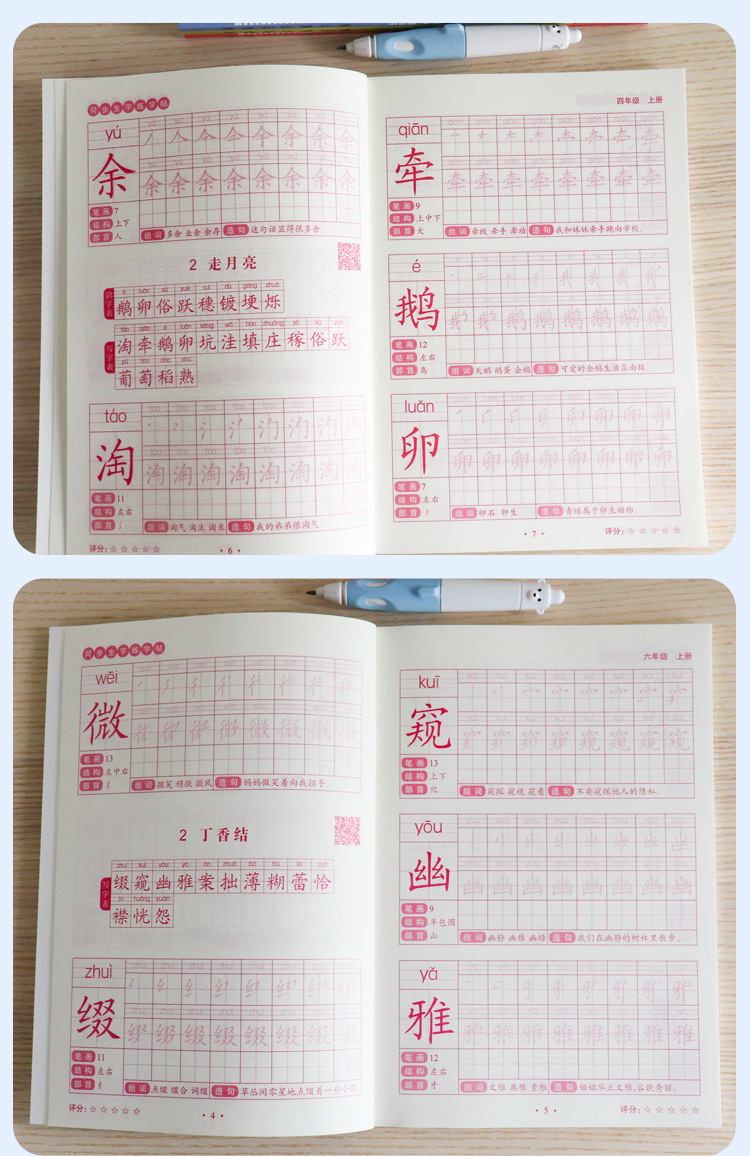 同步生字练字帖
yú
余
笔画 7
结构 上下
部首 人
组词 多余 业余 余存 造句 这句话显得很多余。
2 走月亮
识字表
é luǎn sú yuè suì dù gěng shuò
鹅卵俗跃穗镀埂烁
写字表
táo qiān é luǎn kēng wā tián zhuāng jià sú yuè
淘牵鹅卵坑洼填庄稼俗跃
pú táo dào shú
葡萄稻熟
táo
淘
笔画 11
结构 左右
部首 氵
组词 淘气 淘汰 淘米 造句 我的弟弟很淘气。
评分: ☆☆☆☆☆
· 6 ·
四年级 上册
qiān
牵
笔画 9
结构 上中下
部首 大
组词 牵线 牵手 牵动 造句 我和妹妹牵手跑向学校。
é
鹅
笔画 12
结构 左右
部首 鸟
组词 天鹅 鹅蛋 企鹅 造句 可爱的企鹅生活在南极
luǎn
卵
笔画 7
结构 左右
部首 丿
组词 卵石 卵生 造句 青蛙属于卵生动物。
· 7 ·
评分: ☆☆☆☆☆
同步生字练字帖
wēi
微
笔画 13
结构 左中右
部首 彳
组词 微笑 稍微 微风 造句 妈妈微笑着向我招手。
2 丁香结
写字表
zhuì kuī yōu yǎ àn zhuō bó hú lěi qià
缀窥幽雅案拙薄糊蕾恰
jīn huǎng yuàn
襟恍怨
zhuì
缀
笔画 11
结构 左右
部首 纟
组词 点缀 缀合 词缀 造句 草丛间零星地点缀着一些小花
评分: ☆☆☆☆☆
· 4 ·
六年级 上册
kuī
窥
笔画 13
结构 上下
部首 穴
组词 窥探 窥视 窥看 造句 不要窥探他人的隐私。
yōu
幽
笔画 9
结构 半包围
部首 山
组词 幽静 幽雅 幽暗 造句 我们在幽静的树林里散步。
yǎ
雅
笔画 12
结构 左右
部首 牙
组词 文雅 典雅 素雅 造句 姐姐举止文雅,容貌秀丽。
· 5 ·
评分: ☆☆☆☆☆